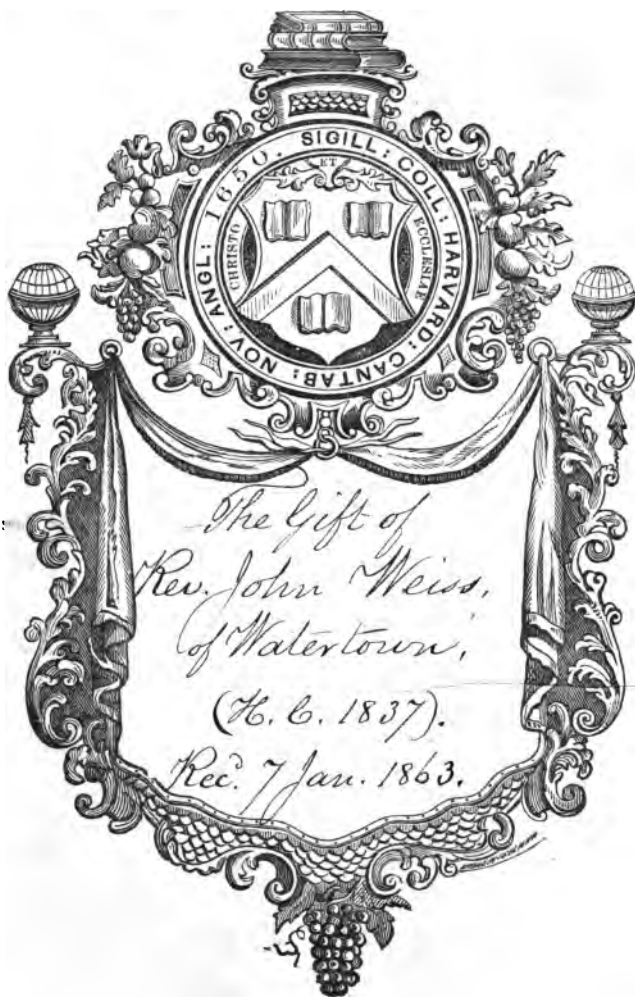 SIGILL: COLL: HARVARD: CANTAB: NOV: ANGL: 1650.
CHRISTO
ET
ECCLESIAE
The Gift of
Rev. John Weiss,
of Watertown,
(H. C. 1837).
Rec'd. 7 Jan. 1863.